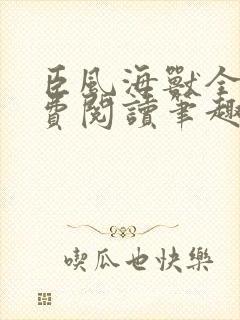 臣風海獸全
費閱讀筆趣
喫瓜也快樂